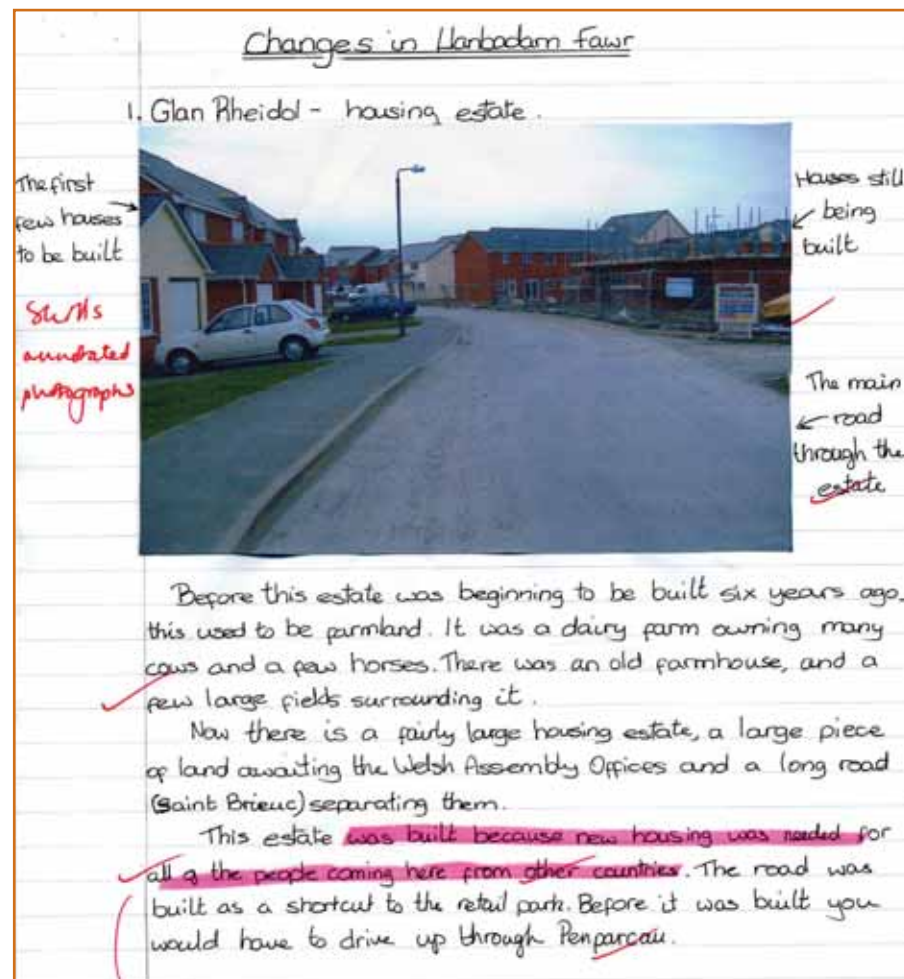 Changes in Llanbadarn Fawr
1. Glan Rheidol - housing estate.
The first
few houses
to be built
Houses still
being
built
Skills
annotated
photographs
The main
road
through the
estate
Before this estate was beginning to be built six years ago,
this used to be farmland. It was a dairy farm owning many
cows and a few horses. There was an old farmhouse, and a
few large fields surrounding it.
Now there is a fairly large housing estate, a large piece
of land awaiting the Welsh Assembly Offices and a long road
(Saint Brieuc) separating them.
This estate was built because new housing was needed for
all of the people coming here from other countries. The road was
built as a shortcut to the retail park. Before it was built you
would have to drive up through Penparcau.